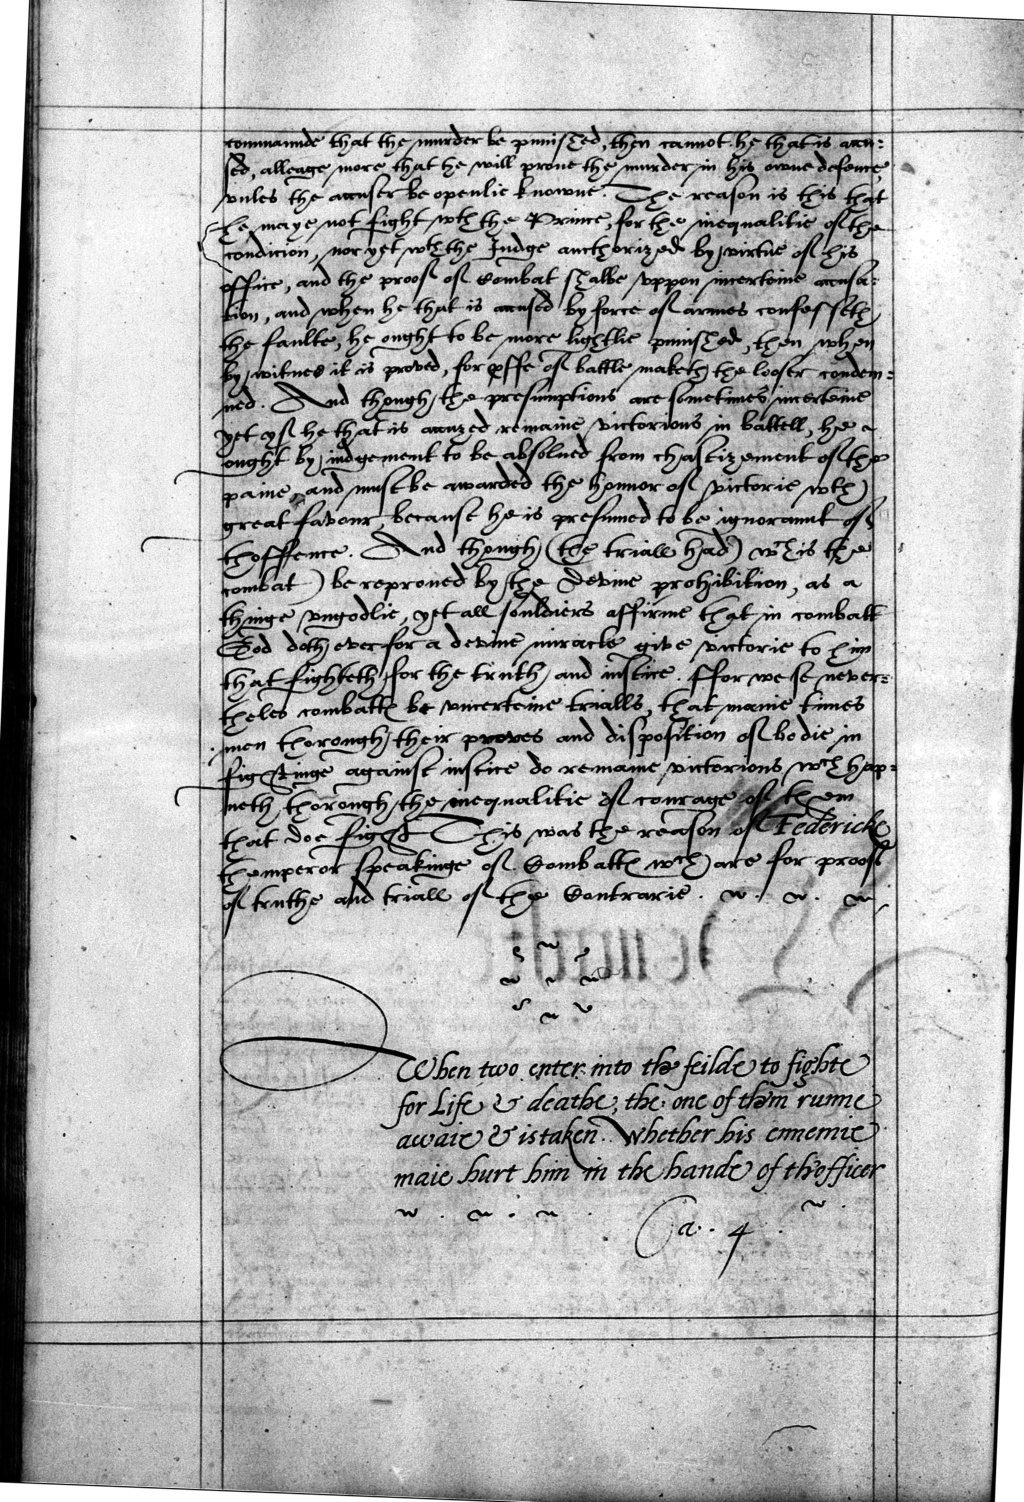 commaunde that the murder be punished, then cannot he that is accu-
sed, alleage more that he will prove the murder in his owne defence,
vnles the accuser be openlie knowne. The reason is this that
he maye not fight wth the Prince, for the inequalitie of the
condicion, nor yet wth the Judge aucthorized by virtue of his
office, and the proof of Combat shalbe vppon incerteine accusa-
tion, and when he that is accused by force of armes confesseth
the faulte, he ought to be more lightlie punished, then when
by witnes it is proved, for of battle maketh the looser condem-
ned. And though the presumptions are sometimes incerteine
yet yf he that is accuzed remaine victorious in battell, he
ought by iudgement to be absolued from chastizement of the
paine, and must be awarded the honnor of victorie wth
great favour, because he is presumed to be ignoraunt of
thoffence. And though (the triall had) wch is the
combat) be reproued by the devine prohibition, as a
thinge vngodlie, yet all souldiers affirme that in combatt
God doth ever for a devine miracle give victorie to him
that fighteth for the truth and iustice. ffor we se never-
theles combatts be vncerteine trialls, that manie times
men thorough their proves and disposition of bodie in
fightinge against iustice do remaine victorious wch hap-
neth thorough the inequalitie of courage of them
that doe fight. This was the reason of Federicke
themperor speakinge of Combatts wch are for proof
of truthe and triall of the Contrarie.
When two enter into the feilde to fighte
for Life & deathe, the one of them runne
awaie & is taken. Whether his ennemie
maie hurt him in the hande of thofficer
Ca. 4